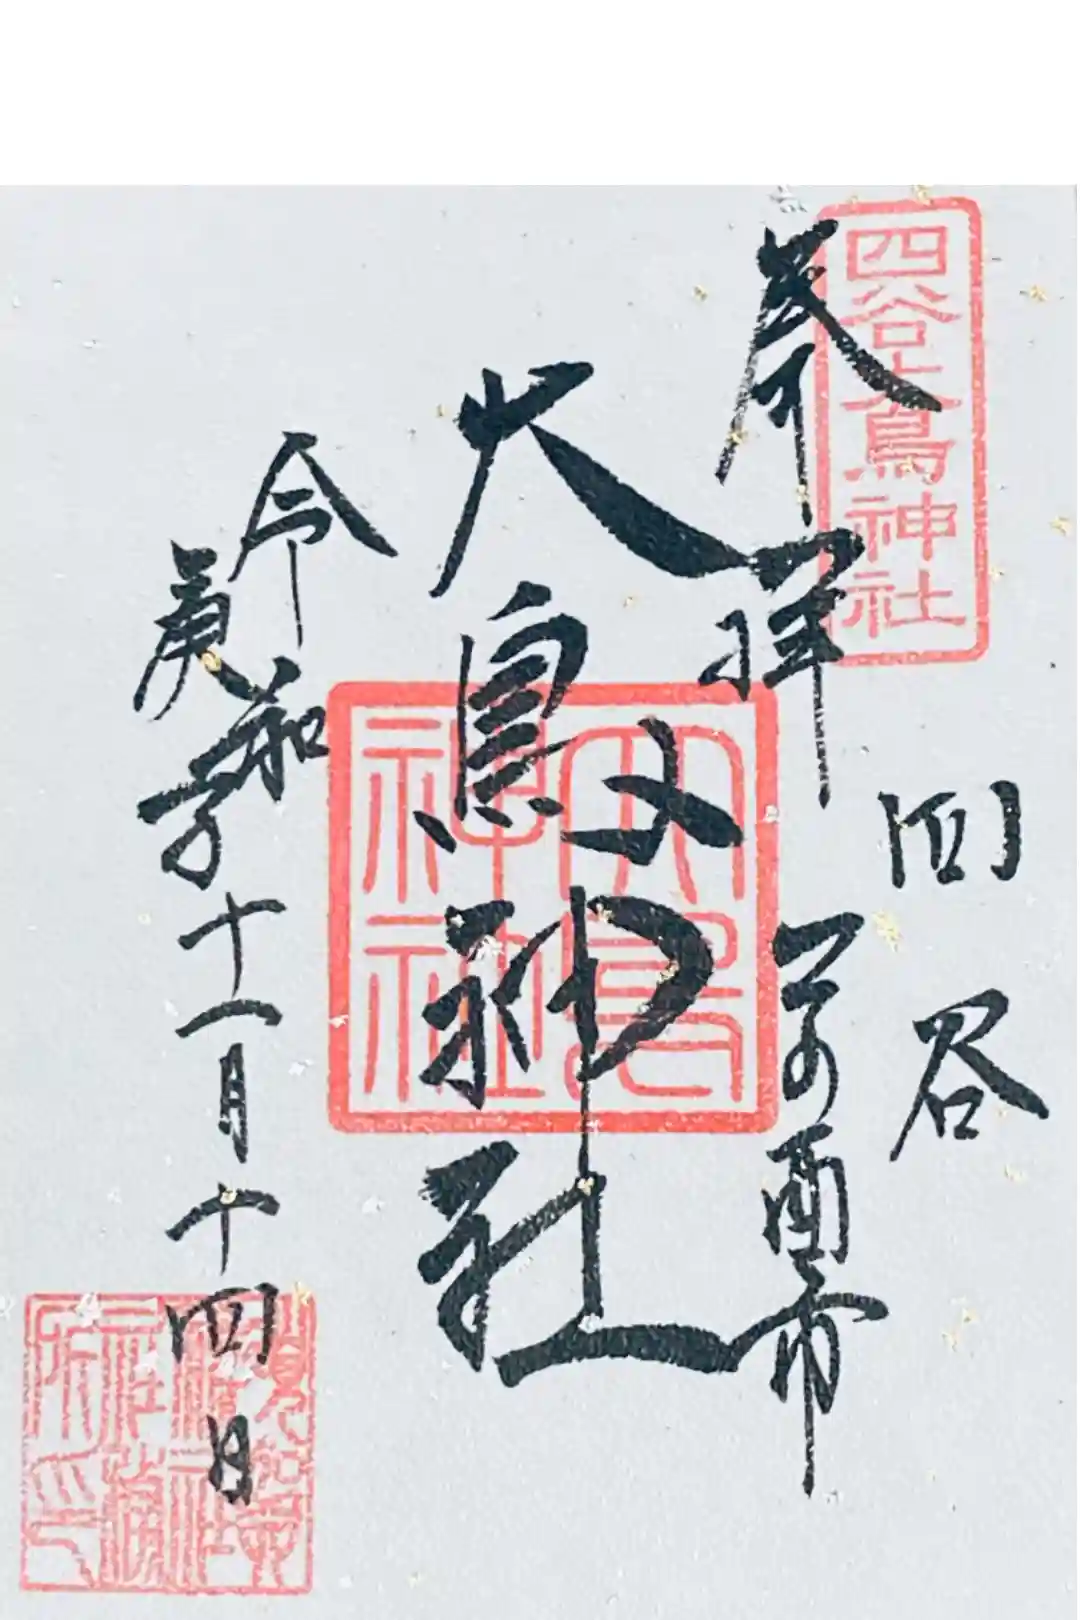 四谷大鳥神社
奉拝
四谷
二の酉市
大鳥神社
大鳥神社
令和
庚子十一月十四日